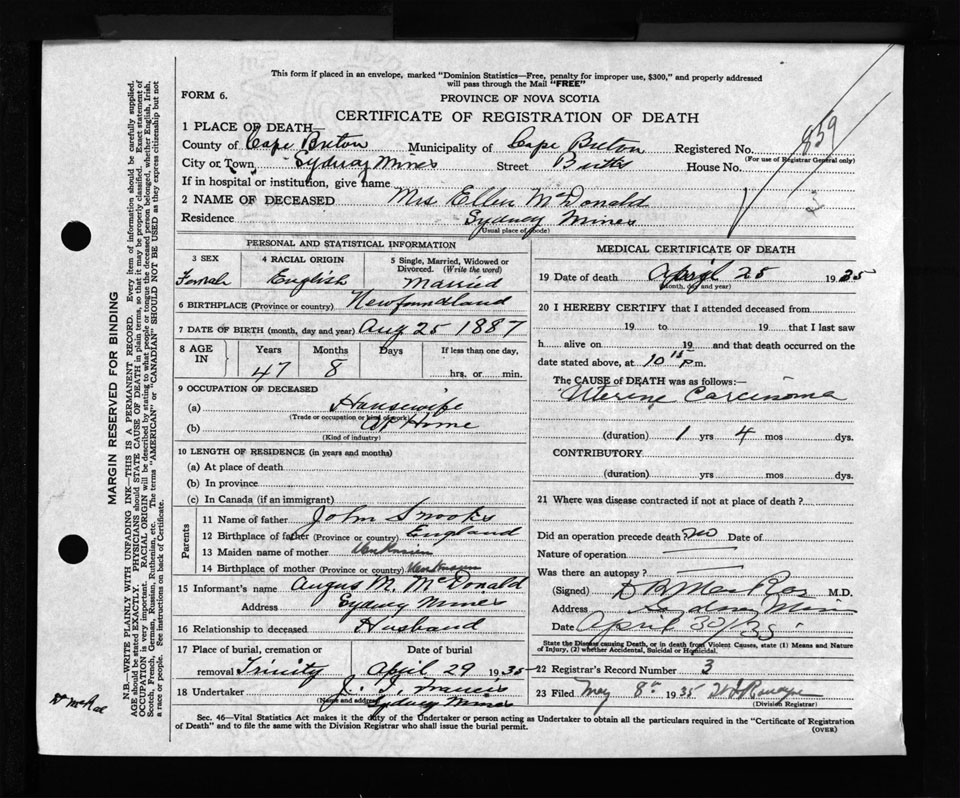 This form if placed in an envelope, marked "Dominion Statistics—Free, penalty for improper use, $300," and properly addressed
will pass through the Mail "FREE"
FORM 6.
PROVINCE OF NOVA SCOTIA
CERTIFICATE OF REGISTRATION OF DEATH
1 PLACE OF DEATH—
County of Cape Breton Municipality of Cape Breton Registered No. 859
(For use of Registrar General only)
City or Town Sydney Mines Street House No.
If in hospital or institution, give name
2 NAME OF DECEASED Mrs Ellen McDonald
Residence Sydney Mines
(Usual place of abode)
PERSONAL AND STATISTICAL INFORMATION
3 SEX 4 RACIAL ORIGIN 5 Single, Married, Widowed or Divorced. (Write the word)
Female English Married
6 BIRTHPLACE (Province or country) Newfoundland
7 DATE OF BIRTH (month, day and year) Aug 25 1887
8 AGE IN Years Months Days If less than one day,
47 8 hrs. or min.
9 OCCUPATION OF DECEASED
(a) Housewife
(Trade or occupation or kind of work)
(b) At Home
(Kind of industry)
10 LENGTH OF RESIDENCE (in years and months)
(a) At place of death
(b) In province
(c) In Canada (if an immigrant)
Parents
11 Name of father John Snooks
12 Birthplace of father (Province or country) England
13 Maiden name of mother Unknown
14 Birthplace of mother (Province or country) Unknown
15 Informant's name Angus M. McDonald
Address Sydney Mines
16 Relationship to deceased Husband
17 Place of burial, cremation or Date of burial
removal Trinity April 29 1935
18 Undertaker J. Francis
(Name and address) Sydney Mines
MEDICAL CERTIFICATE OF DEATH
19 Date of death April 25 1935
(month, day and year)
20 I HEREBY CERTIFY that I attended deceased from
19 to 19 that I last saw
h alive on 19 and that death occurred on the
date stated above, at 10 15 P.m.
The CAUSE of DEATH was as follows:—
Uterine Carcinoma
(duration) 1 yrs 4 mos dys.
CONTRIBUTORY
(duration) yrs. mos. dys.
21 Where was disease contracted if not at place of death?
Did an operation precede death no Date of
Nature of operation
Was there an autopsy?
(Signed) M.D.
Address Sydney Mines
Date April 30/35
State the Disease causing Death, or in death from Violent Causes, state (1) Means and Nature
of Injury, (2) whether Accidental, Suicidal or Homicidal.
22 Registrar's Record Number 3
23 Filed May 8th 1935
(Division Registrar)
Sec. 46—Vital Statistics Act makes it the duty of the Undertaker or person acting as Undertaker to obtain all the particulars required in the "Certificate of Registration
of Death" and to file the same with the Division Registrar who shall issue the burial permit.
(OVER)
MARGIN RESERVED FOR BINDING
N.B.—WRITE PLAINLY WITH UNFADING INK—THIS IS A PERMANENT RECORD. Every item of information should be carefully supplied.
AGE should be stated EXACTLY. PHYSICIANS should STATE CAUSE OF DEATH in plain terms, so that it may be properly classified. Exact statement of
OCCUPATION is very important. RACIAL ORIGIN will be described by stating to what people or tongue the deceased person belonged, whether English, Irish,
Scotch, French, German, Russian, Ruthenian, etc. The terms "AMERICAN" or "CANADIAN" SHOULD NOT BE USED as they express citizenship but not
a race or people. See instructions on back of Certificate.